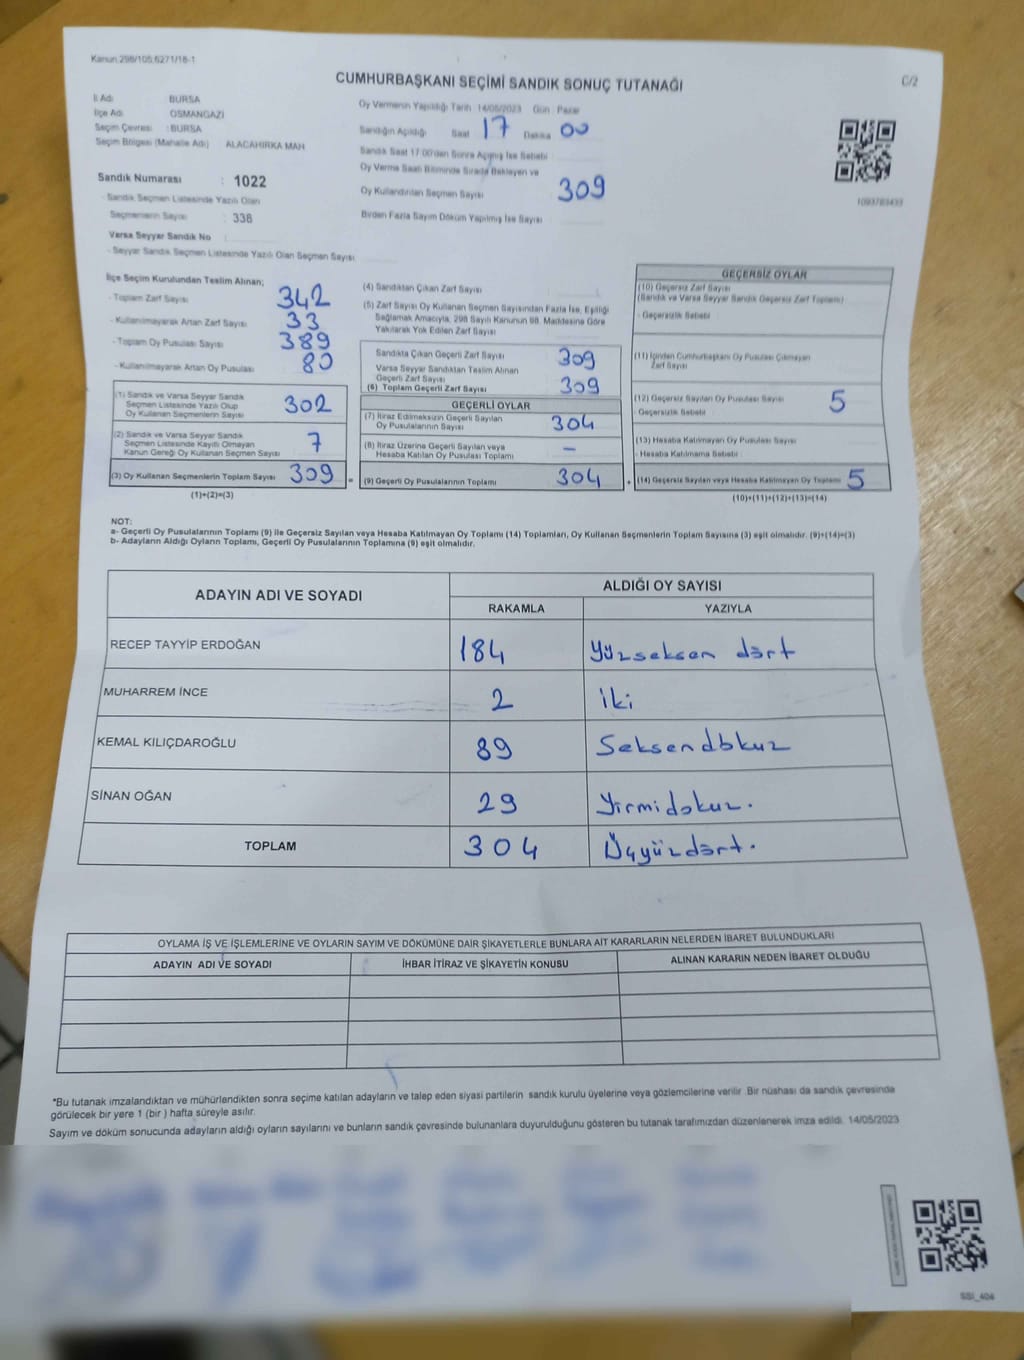 Kanun 298/105,6271/18-1
CUMHURBAŞKANI SEÇİMİ SANDIK SONUÇ TUTANAĞI
C/2
İl Adı BURSA
İlçe Adı OSMANGAZİ
Seçim Çevresi : BURSA
Seçim Bölgesi (Mahalle Adı) ALACAHIRKA MAH
Sandık Numarası : 1022
- Sandık Seçmen Listesinde Yazılı Olan
Seçmenlerin Sayısı : 338
Varsa Seyyar Sandık No :
- Seyyar Sandık Seçmen Listesinde Yazılı Olan Seçmen Sayısı
Oy Vermenin Yapıldığı Tarih 14/05/2023 Gün Pazar
Sandığın Açıldığı Saat 17 Dakika 00
Sandık Saat 17:00'den Sonra Açılmış İse Sebebi
Oy Verme Saati Bitiminde Sırada Bekleyen ve
Oy Kullandırılan Seçmen Sayısı 309
Birden Fazla Sayım Döküm Yapılmış İse Sayısı
1093783433
İlçe Seçim Kurulundan Teslim Alınan;
- Toplam Zarf Sayısı 342
- Kullanılmayarak Artan Zarf Sayısı 33
- Toplam Oy Pusulası Sayısı 389
- Kullanılmayarak Artan Oy Pusulası 80
(1) Sandık ve Varsa Seyyar Sandık
Seçmen Listesinde Yazılı Olup
Oy Kullanan Seçmenlerin Sayısı 302
(2) Sandık ve Varsa Seyyar Sandık
Seçmen Listesinde Kayıtlı Olmayan
Kanun Gereği Oy Kullanan Seçmen Sayısı 7
(3) Oy Kullanan Seçmenlerin Toplam Sayısı 309 =
(1)+(2)=(3)
(4) Sandıktan Çıkan Zarf Sayısı
(5) Zarf Sayısı Oy Kullanan Seçmen Sayısından Fazla İse, Eşitliği
Sağlamak Amacıyla, 298 Sayılı Kanunun 98. Maddesine Göre
Yakılarak Yok Edilen Zarf Sayısı
Sandıkta Çıkan Geçerli Zarf Sayısı 309
Varsa Seyyar Sandıktan Teslim Alınan
Geçerli Zarf Sayısı
(6) Toplam Geçerli Zarf Sayısı 309
GEÇERLİ OYLAR
(7) İtiraz Edilmeksizin Geçerli Sayılan
Oy Pusulalarının Sayısı 304
(8) İtiraz Üzerine Geçerli Sayılan veya
Hesaba Katılan Oy Pusulası Toplamı –
(9) Geçerli Oy Pusulalarının Toplamı 304 +
GEÇERSİZ OYLAR
(10) Geçersiz Zarf Sayısı
(Sandık ve Varsa Seyyar Sandık Geçersiz Zarf Toplamı)
- Geçersizlik Sebebi
(11) İçinden Cumhurbaşkanı Oy Pusulası Çıkmayan
Zarf Sayısı
(12) Geçersiz Sayılan Oy Pusulası Sayısı 5
Geçersizlik Sebebi
(13) Hesaba Katılmayan Oy Pusulası Sayısı
- Hesaba Katılmama Sebebi :
(14) Geçersiz Sayılan veya Hesaba Katılmayan Oy Toplamı 5
(10)+(11)+(12)+(13)=(14)
NOT:
a- Geçerli Oy Pusulalarının Toplamı (9) ile Geçersiz Sayılan veya Hesaba Katılmayan Oy Toplamı (14) Toplamları, Oy Kullanan Seçmenlerin Toplam Sayısına (3) eşit olmalıdır. (9)+(14)=(3)
b- Adayların Aldığı Oyların Toplamı, Geçerli Oy Pusulalarının Toplamına (9) eşit olmalıdır.
ADAYIN ADI VE SOYADI ALDIĞI OY SAYISI
RAKAMLA YAZIYLA
RECEP TAYYİP ERDOĞAN 184 Yüzseksen dört
MUHARREM İNCE 2 iki
KEMAL KILIÇDAROĞLU 89 Seksendokuz
SİNAN OĞAN 29 Yirmidokuz.
TOPLAM 304 Üçyüzdört.
OYLAMA İŞ VE İŞLEMLERİNE VE OYLARIN SAYIM VE DÖKÜMÜNE DAİR ŞİKAYETLERLE BUNLARA AİT KARARLARIN NELERDEN İBARET BULUNDUKLARI
ADAYIN ADI VE SOYADI İHBAR İTİRAZ VE ŞİKAYETİN KONUSU ALINAN KARARIN NEDEN İBARET OLDUĞU
*Bu tutanak imzalandıktan ve mühürlendikten sonra seçime katılan adayların ve talep eden siyasi partilerin sandık kurulu üyelerine veya gözlemcilerine verilir. Bir nüshası da sandık çevresinde
görülecek bir yere 1 (bir ) hafta süreyle asılır.
Sayım ve döküm sonucunda adayların aldığı oyların sayılarını ve bunların sandık çevresinde bulunanlara duyurulduğunu gösteren bu tutanak tarafımızdan düzenlenerek imza edildi. 14/05/2023
SSI_404